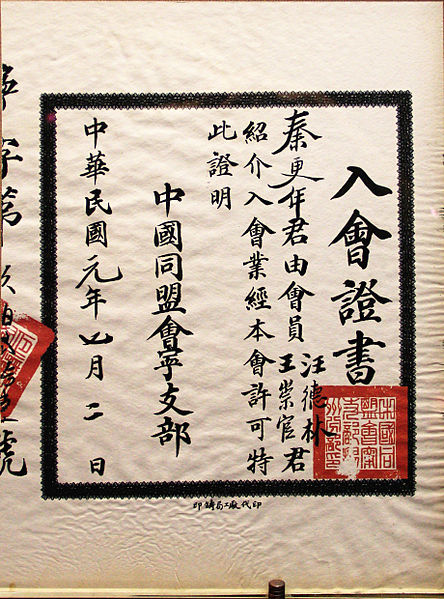 入會證書
秦更年君由會員汪德林王崇官君
紹介入會業經本會許可特
此證明
中國同盟會寧支部
中華民國元年四月二日
字第號
印鑄局工廠代印